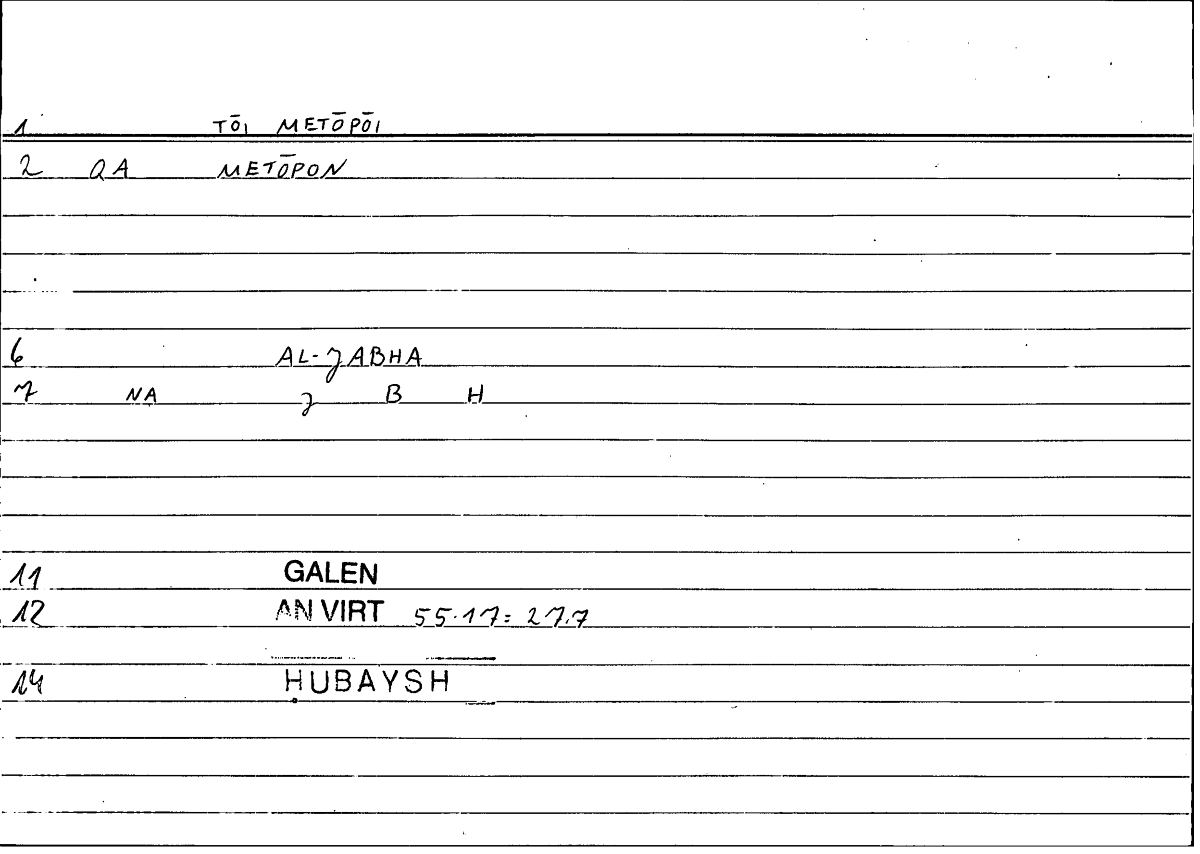 1 TŌI METŌPŌI
2 QA METŌPON
6 AL-JABHA
7 NA J B H
11 GALEN
12 AN VIRT 55.17 = 27.7
14 ḤUBAYSH